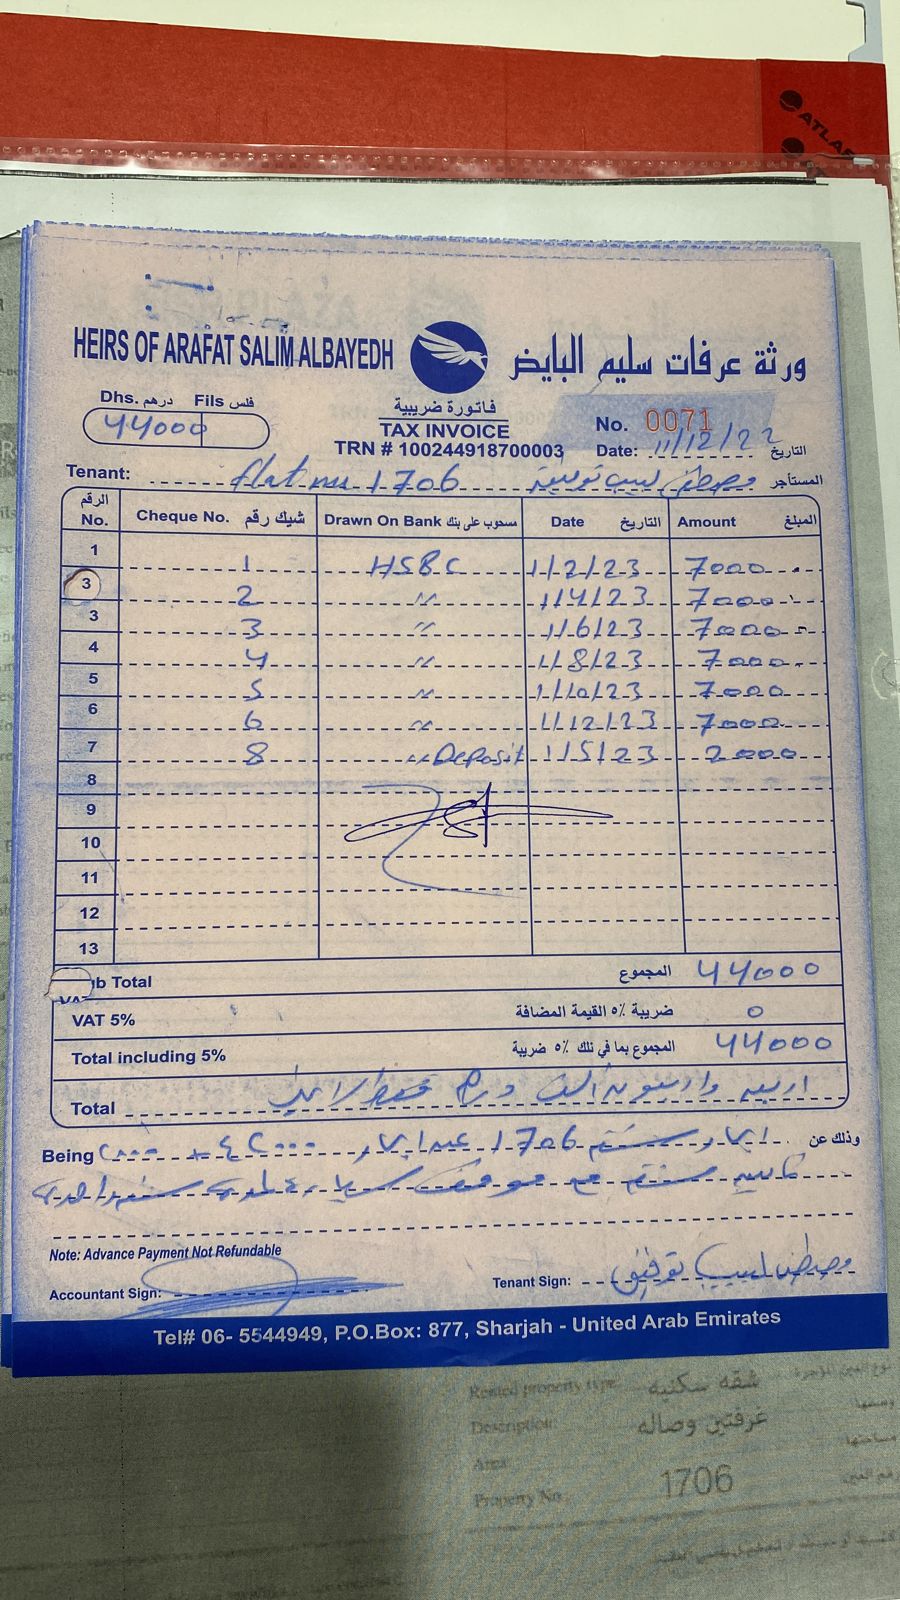 ATLAS
HEIRS OF ARAFAT SALIM ALBAYEDH ورثة عرفات سليم البايض
Dhs. درهم Fils فلس
44000
فاتورة ضريبية
TAX INVOICE
TRN # 100244918700003
No. 0071
Date: 11/12/22 التاريخ
Tenant: flat no 1706 مصطفى لبيب توفيق المستأجر
الرقم No. Cheque No. شيك رقم Drawn On Bank مسحوب على بنك Date التاريخ Amount المبلغ
1 1 HSBC 1/2/23 7000
3 2 〃 1/4/23 7000
3 3 〃 1/6/23 7000
4 4 〃 1/8/23 7000
5 5 〃 1/10/23 7000
6 6 〃 1/12/23 7000
7 8 〃 Deposit 1/5/23 2000
8
9
10
11
12
13
ub Total المجموع 44000
VAT 5% ضريبة ٥٪ القيمة المضافة 0
Total including 5% المجموع بما في ذلك ٥٪ ضريبة 44000
Total اربعه واربعون الف درهم فقط لا غير
Being وذلك عن 1706
Note: Advance Payment Not Refundable
Accountant Sign:
Tenant Sign: مصطفى لبيب توفيق
Tel# 06- 5544949, P.O.Box: 877, Sharjah - United Arab Emirates
Rented property type: شقه سكنيه
Description: غرفتين وصاله
Area
Property No 1706